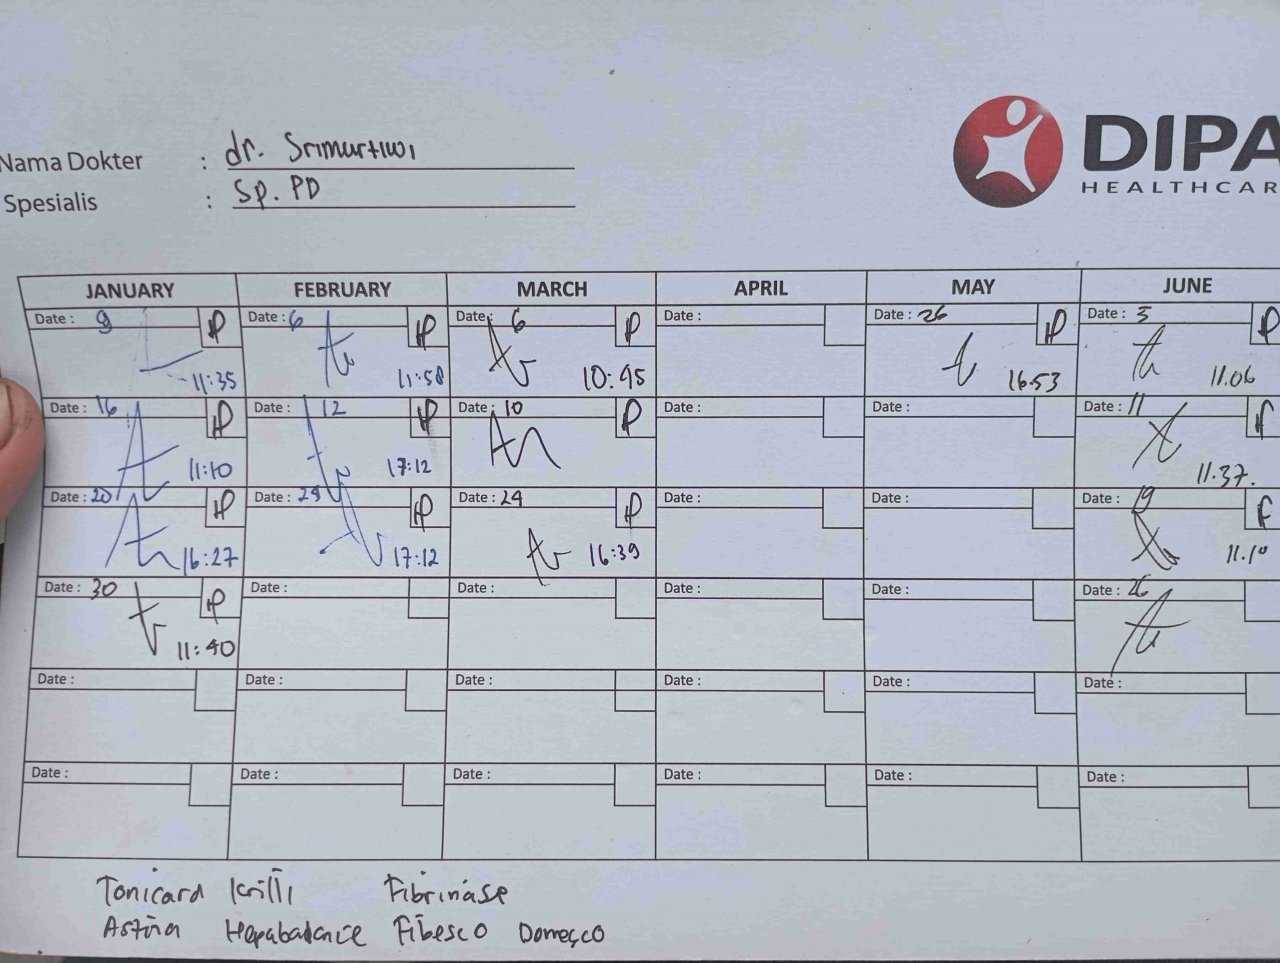 Nama Dokter : dr. Srimurtiwi
Spesialis : Sp. PD
DIPA
HEALTHCAR
JANUARY FEBRUARY MARCH APRIL MAY JUNE
Date : 9 P Date : 6 P Date : 6 P Date : Date : 26 P Date : 3 P
11:35 11:58 10:45 16.53 11.06
Date : 16 P Date : 12 P Date : 10 P Date : Date : Date : 11 f
11:10 17:12 11.37.
Date : 20 P Date : 24 P Date : 24 P Date : Date : Date : 19 f
16:27 17:12 16:39 11.10
Date : 30 P Date : Date : Date : Date : Date : 26
11:40
Date : Date : Date : Date : Date : Date :
Date : Date : Date : Date : Date : Date :
Tonicard Krilli Fibrinase
Astina Hepabalance Fibesco Domeçco